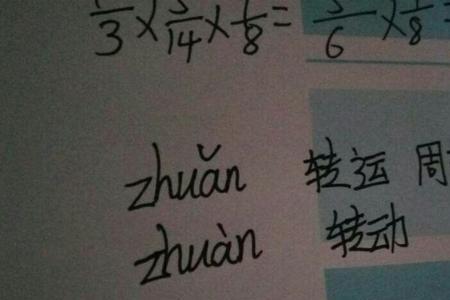 /3 × /14 × /8 = /6 × /8
zhuǎn 转运 周
zhuàn 转动